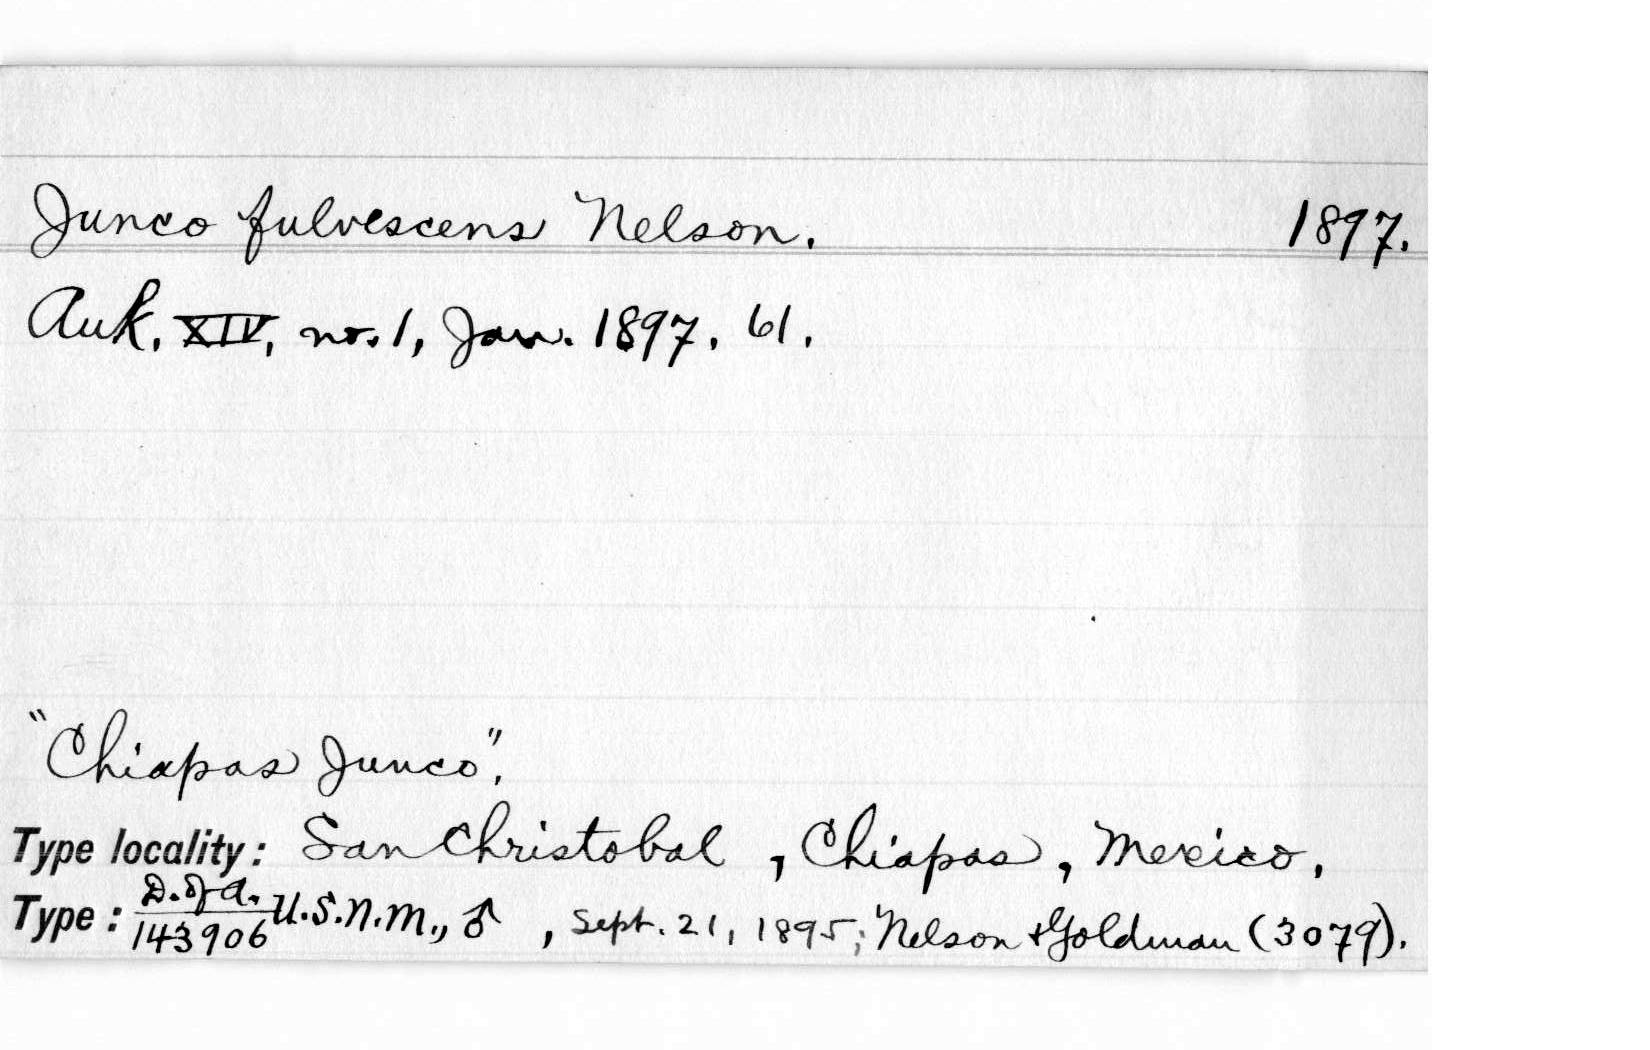 Junco fulvescens Nelson. 1897.
Auk, XIV, no. 1, Jan. 1897, 61.
"Chiapas Junco".
Type locality: San Christobal, Chiapas, Mexico.
Type: D. of A. 143906 U.S.N.M., ♂, Sept. 21, 1895; Nelson & Goldman (3079).